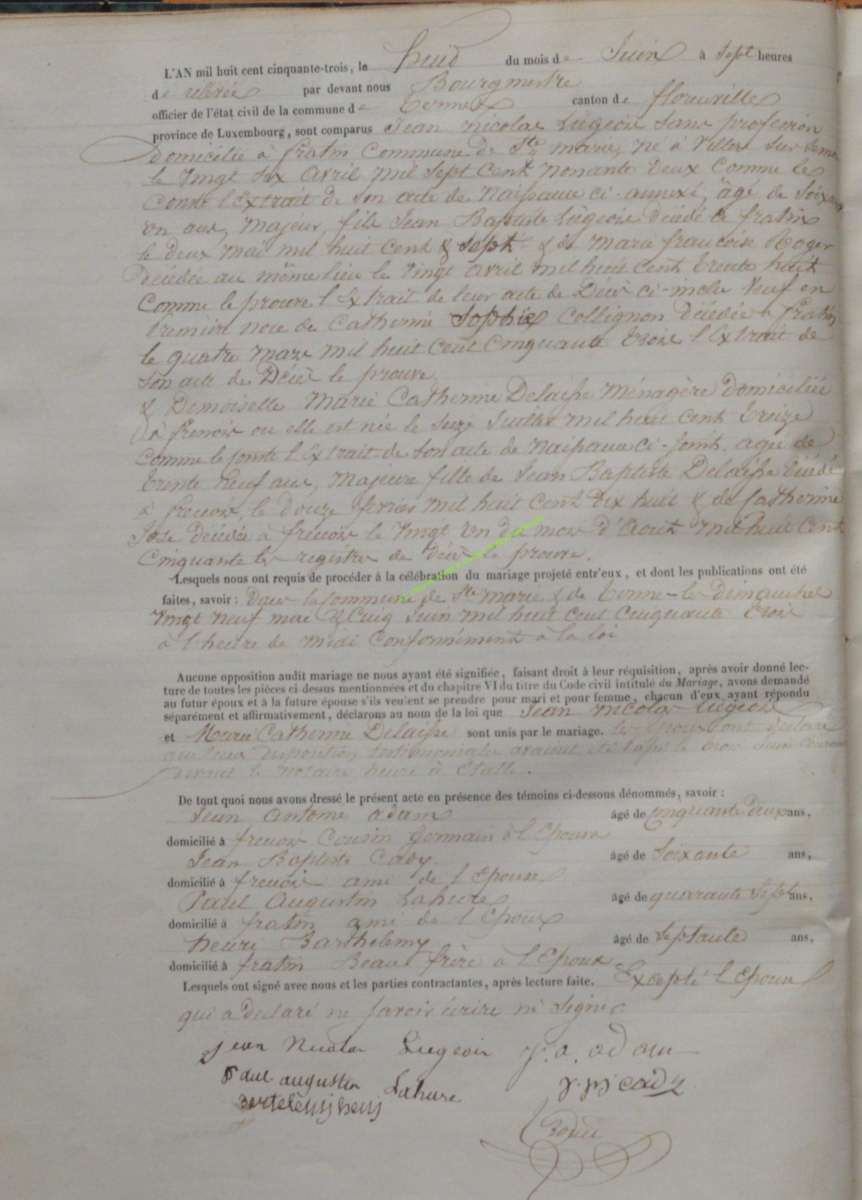 L'AN mil huit cent cinquante-trois, le huid du mois de Juin à sept heures
de par devant nous Bourgmestre
officier de l'état civil de la commune de canton de florenville
province de Luxembourg, sont comparus Jean Nicolas Liégeois sans profession
Domicilié à fratin Commune de Ste marie, né à Villers sur Semois
le Vingt six avril mil sept Cent nonante deux Comme le
Conste l'Extrait de son acte de Naissance ci-annexé, âgé de Soixante
un ans, Majeur, fils Jean Baptiste Liégeois Décédé à fratin
le deux Mai mil huit Cent & sept & de Marie francoise Roger
Décédée au même lieu le Vingt avril mil huit Cent trente huit
Comme le prouve l'Extrait de leur acte de Décès Veuf en
premier noce de Catherine Sophie Collignon Décédée à fratin
le quatre mars mil huit Cent Cinquante trois l'Extrait de
son acte de Décès le prouve.
& Demoiselle Marie Catherine Delaisse Ménagère domiciliée
à frenois ou elle est née le Juillet mil huit Cent treize
Comme le l'Extrait de son acte de Naissance ci-joint, agée de
trente neuf ans, Majeure fille de Jean Baptiste Delaisse Décédé
à frenois le douze fevrier mil huit Cent Dix huit & de Catherine
Décédée à frenois le Vingt un du mois d'Aout mil huit Cent
Cinquante les registres de Décès le prouve.
Lesquels nous ont requis de procéder à la célébration du mariage projeté entr'eux, et dont les publications ont été
faites, savoir : Dans la Commune de Ste marie & de le Dimanches
Vingt neuf mai & Cinq Juin mil huit Cent Cinquante trois
à l'heure de midi Conformément à la loi
Aucune opposition audit mariage ne nous ayant été signifiée, faisant droit à leur réquisition, après avoir donné lec-
ture de toutes les pièces ci-dessus mentionnées et du chapitre VI du titre du Code civil intitulé du Mariage, avons demandé
au futur époux et à la future épouse s'ils veulent se prendre pour mari et pour femme, chacun d'eux ayant répondu
séparément et affirmativement, déclarons au nom de la loi que Jean Nicolas Liégeois
et Marie Catherine Delaisse sont unis par le mariage. les Epoux ont déclaré
que leurs avaient été le trois Juin Courant
devant le Notaire à Etalle.
De tout quoi nous avons dressé le présent acte en présence des témoins ci-dessous dénommés, savoir :
Jean antoine adam âgé de Cinquante deux ans,
domicilié à frenois Cousin Germain à l'Epouse
Jean Baptiste Cady. âgé de Soixante ans,
domicilié à frenois ami de l'Epouse
Paul Augustin Lahure âgé de quarante Sept ans,
domicilié à fratin ami de l'Epoux
henri Barthelemy âgé de Septante ans,
domicilié à fratin Beau frère à l'Epoux
Lesquels ont signé avec nous et les parties contractantes, après lecture faite. Excepté l'Epouse
qui a déclaré ne savoir écrire ni Signer
Jean Nicolas Liegeois J. a. adam
Paul augustin Lahure